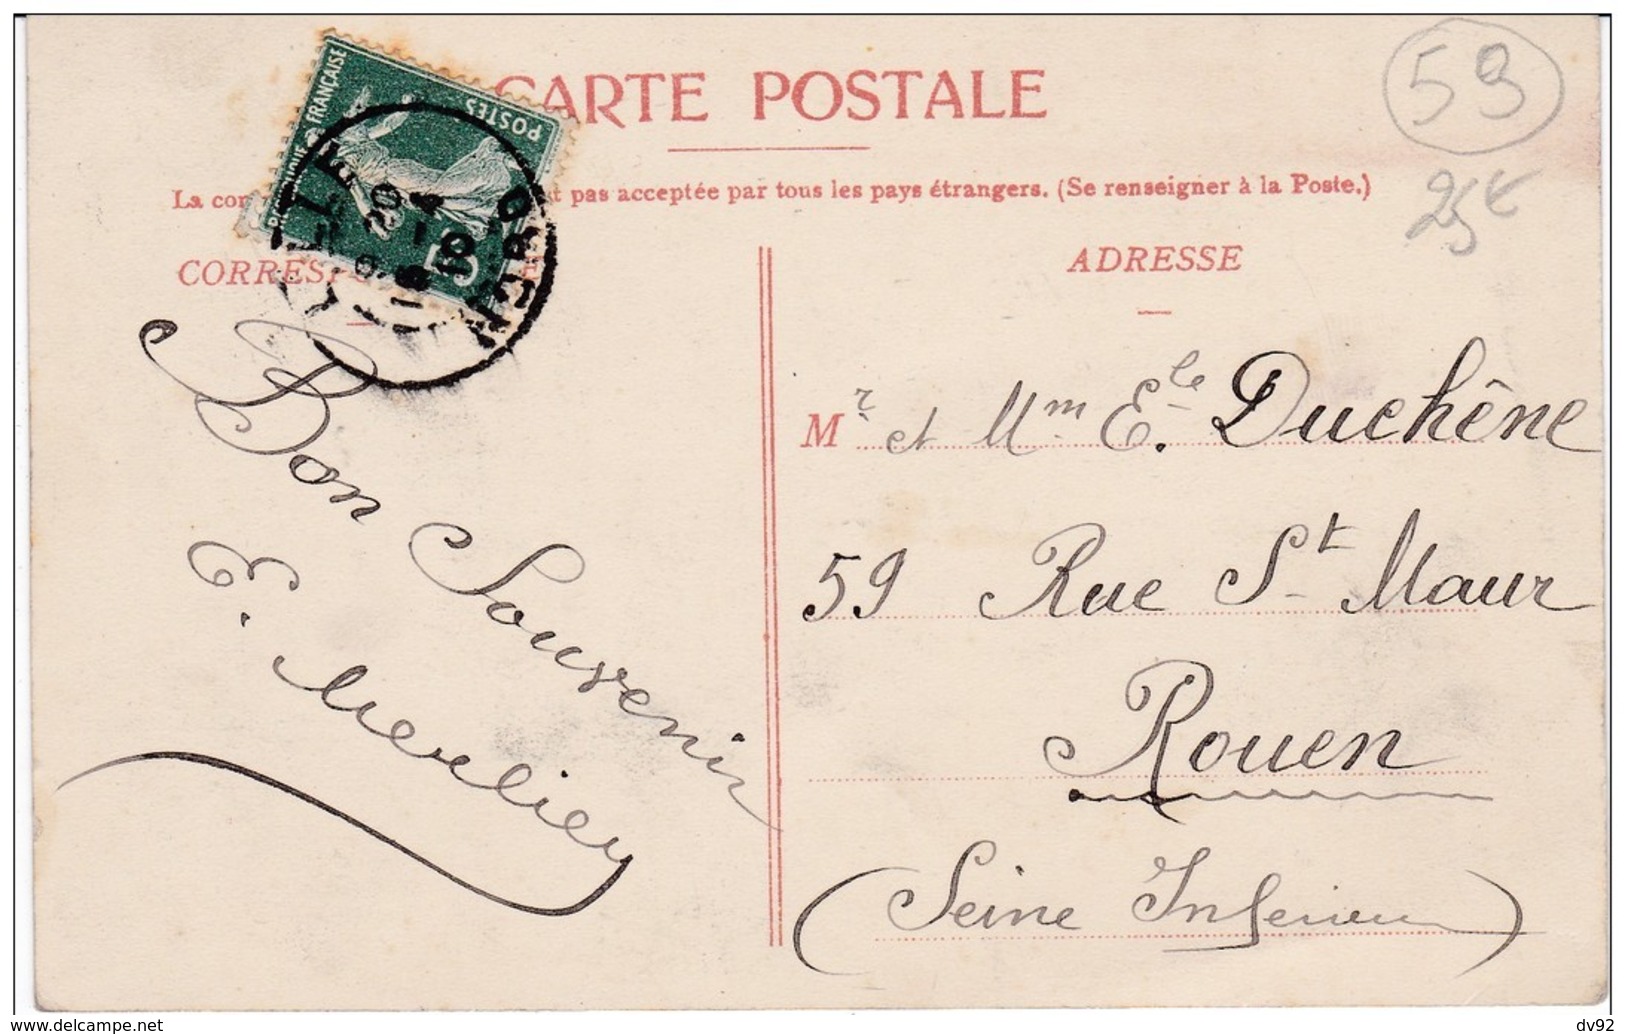 CARTE POSTALE
59
25€
La cor pas acceptée par tous les pays étrangers. (Se renseigner à la Poste.)
FRANÇAISE
POSTES
5
LILLE
NORD
20
CORRESP
ADRESSE
Bon Souvenir
E.
Mr et Mm E.le Duchêne
59 Rue St Maur
Rouen
(Seine Inferieure)
delcampe.net
dv92